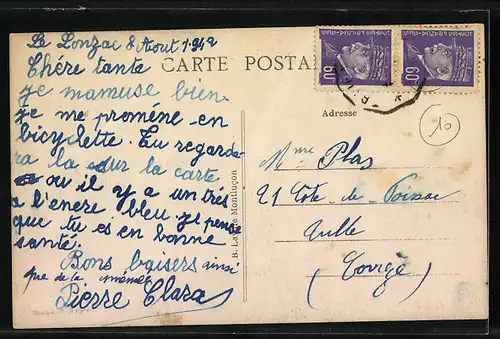 Le Lonzac 8 Aout 1942
Chére tante
je mamuse bien
je me promène en
bicyclette. Tu regarde-
ra la sur la carte
ou il y a un tré
a l'encre bleu. je pense
que tu es en bonne
santé.
Bons baisers ainsi
que de la
Pierre Clara
CARTE POSTA
Adresse
10
Mme Plas
21 Cote de Poissac
Tulle
(Corrèze)
Montluçon
60
60